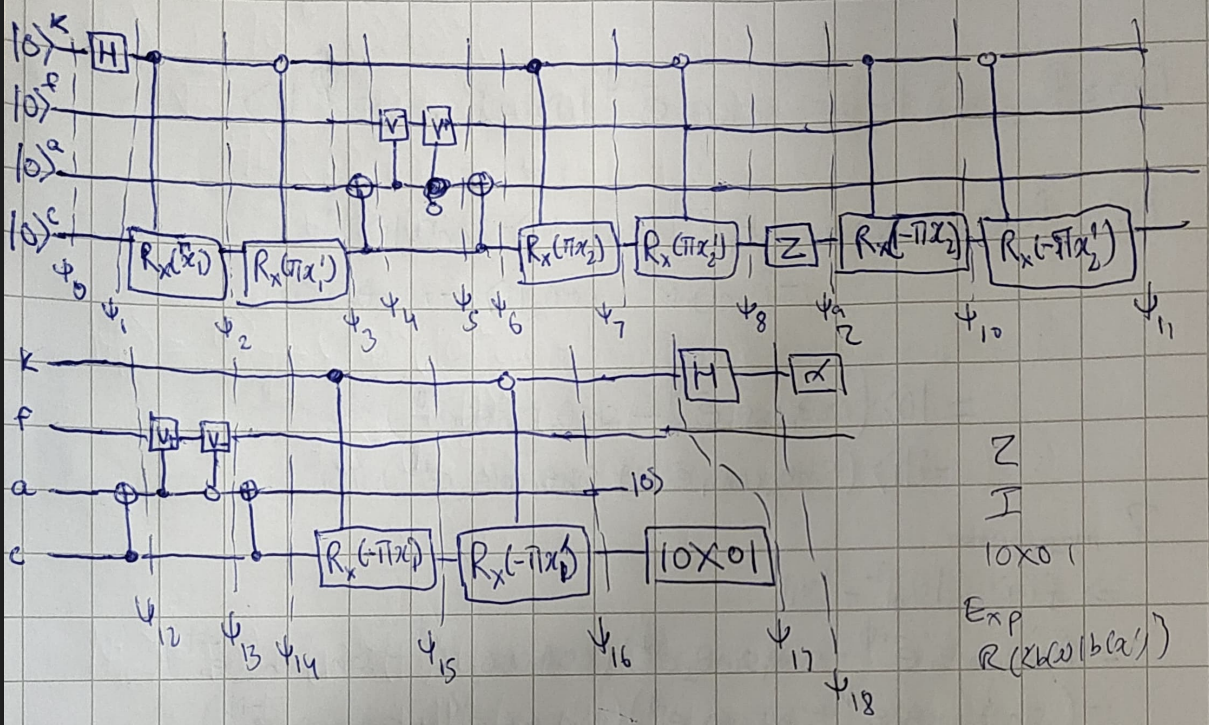 |0⟩ᴷ H
|0⟩ᶠ V V†
|0⟩ᵃ
|0⟩ᶜ Rₓ(πx₁) Rₓ(πx₁') Rₓ(πx₂) Rₓ(πx₂') Z Rₓ(-πx₂) Rₓ(-πx₂')
ψ₀ ψ₁ ψ₂ ψ₃ ψ₄ ψ₅ ψ₆ ψ₇ ψ₈ ψ₉ ψ₁₀ ψ₁₁
2
K H α
f V† V
a |0⟩
c Rₓ(-πx₁) Rₓ(-πx₁') |0X0|
ψ₁₂ ψ₁₃ ψ₁₄ ψ₁₅ ψ₁₆ ψ₁₇ ψ₁₈
Z
I
|0X0|
Exp
R(⟨b(x)|b(x')⟩)